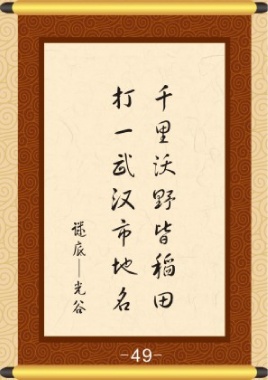 千里沃野皆稻田
打一武汉市地名
谜底——光谷
-49-